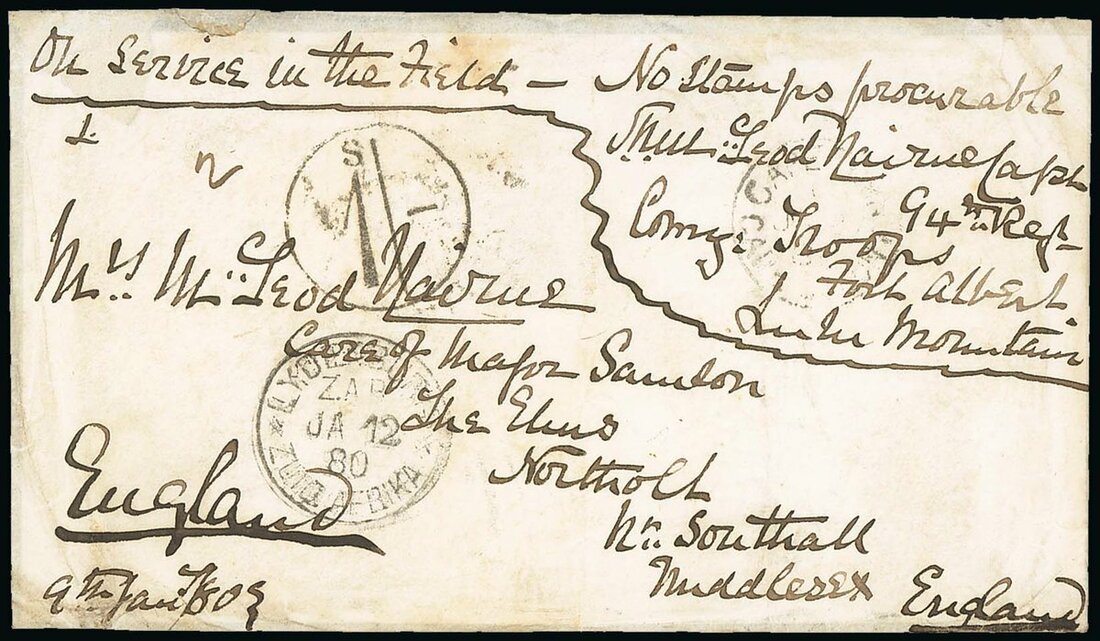 On Service in the Field —
No Stamps procurable
McLeod Nairne Capt
94th Regt
Comg. Troops
Fort Albert
Lulu Mountain
S
1
Mrs. McLeod Nairne
Care of Major Samson
The Elms
Northolt
Nr. Southall
Middlesex
England
England
9th Jany 80
LYDENBURG
ZAR
JA 12
80
ZUID AFRIKA